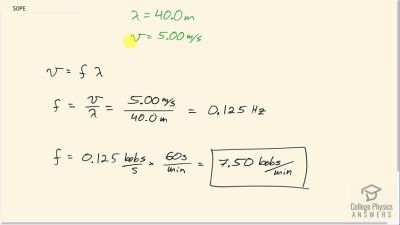 5OPE
λ = 40.0 m
v = 5.00 m/s
v = f λ
f = v/λ = 5.00 m/s / 40.0 m = 0.125 Hz
f = 0.125 bobs/s × 60s/min = 7.50 bobs/min
College Physics
ANSWERS